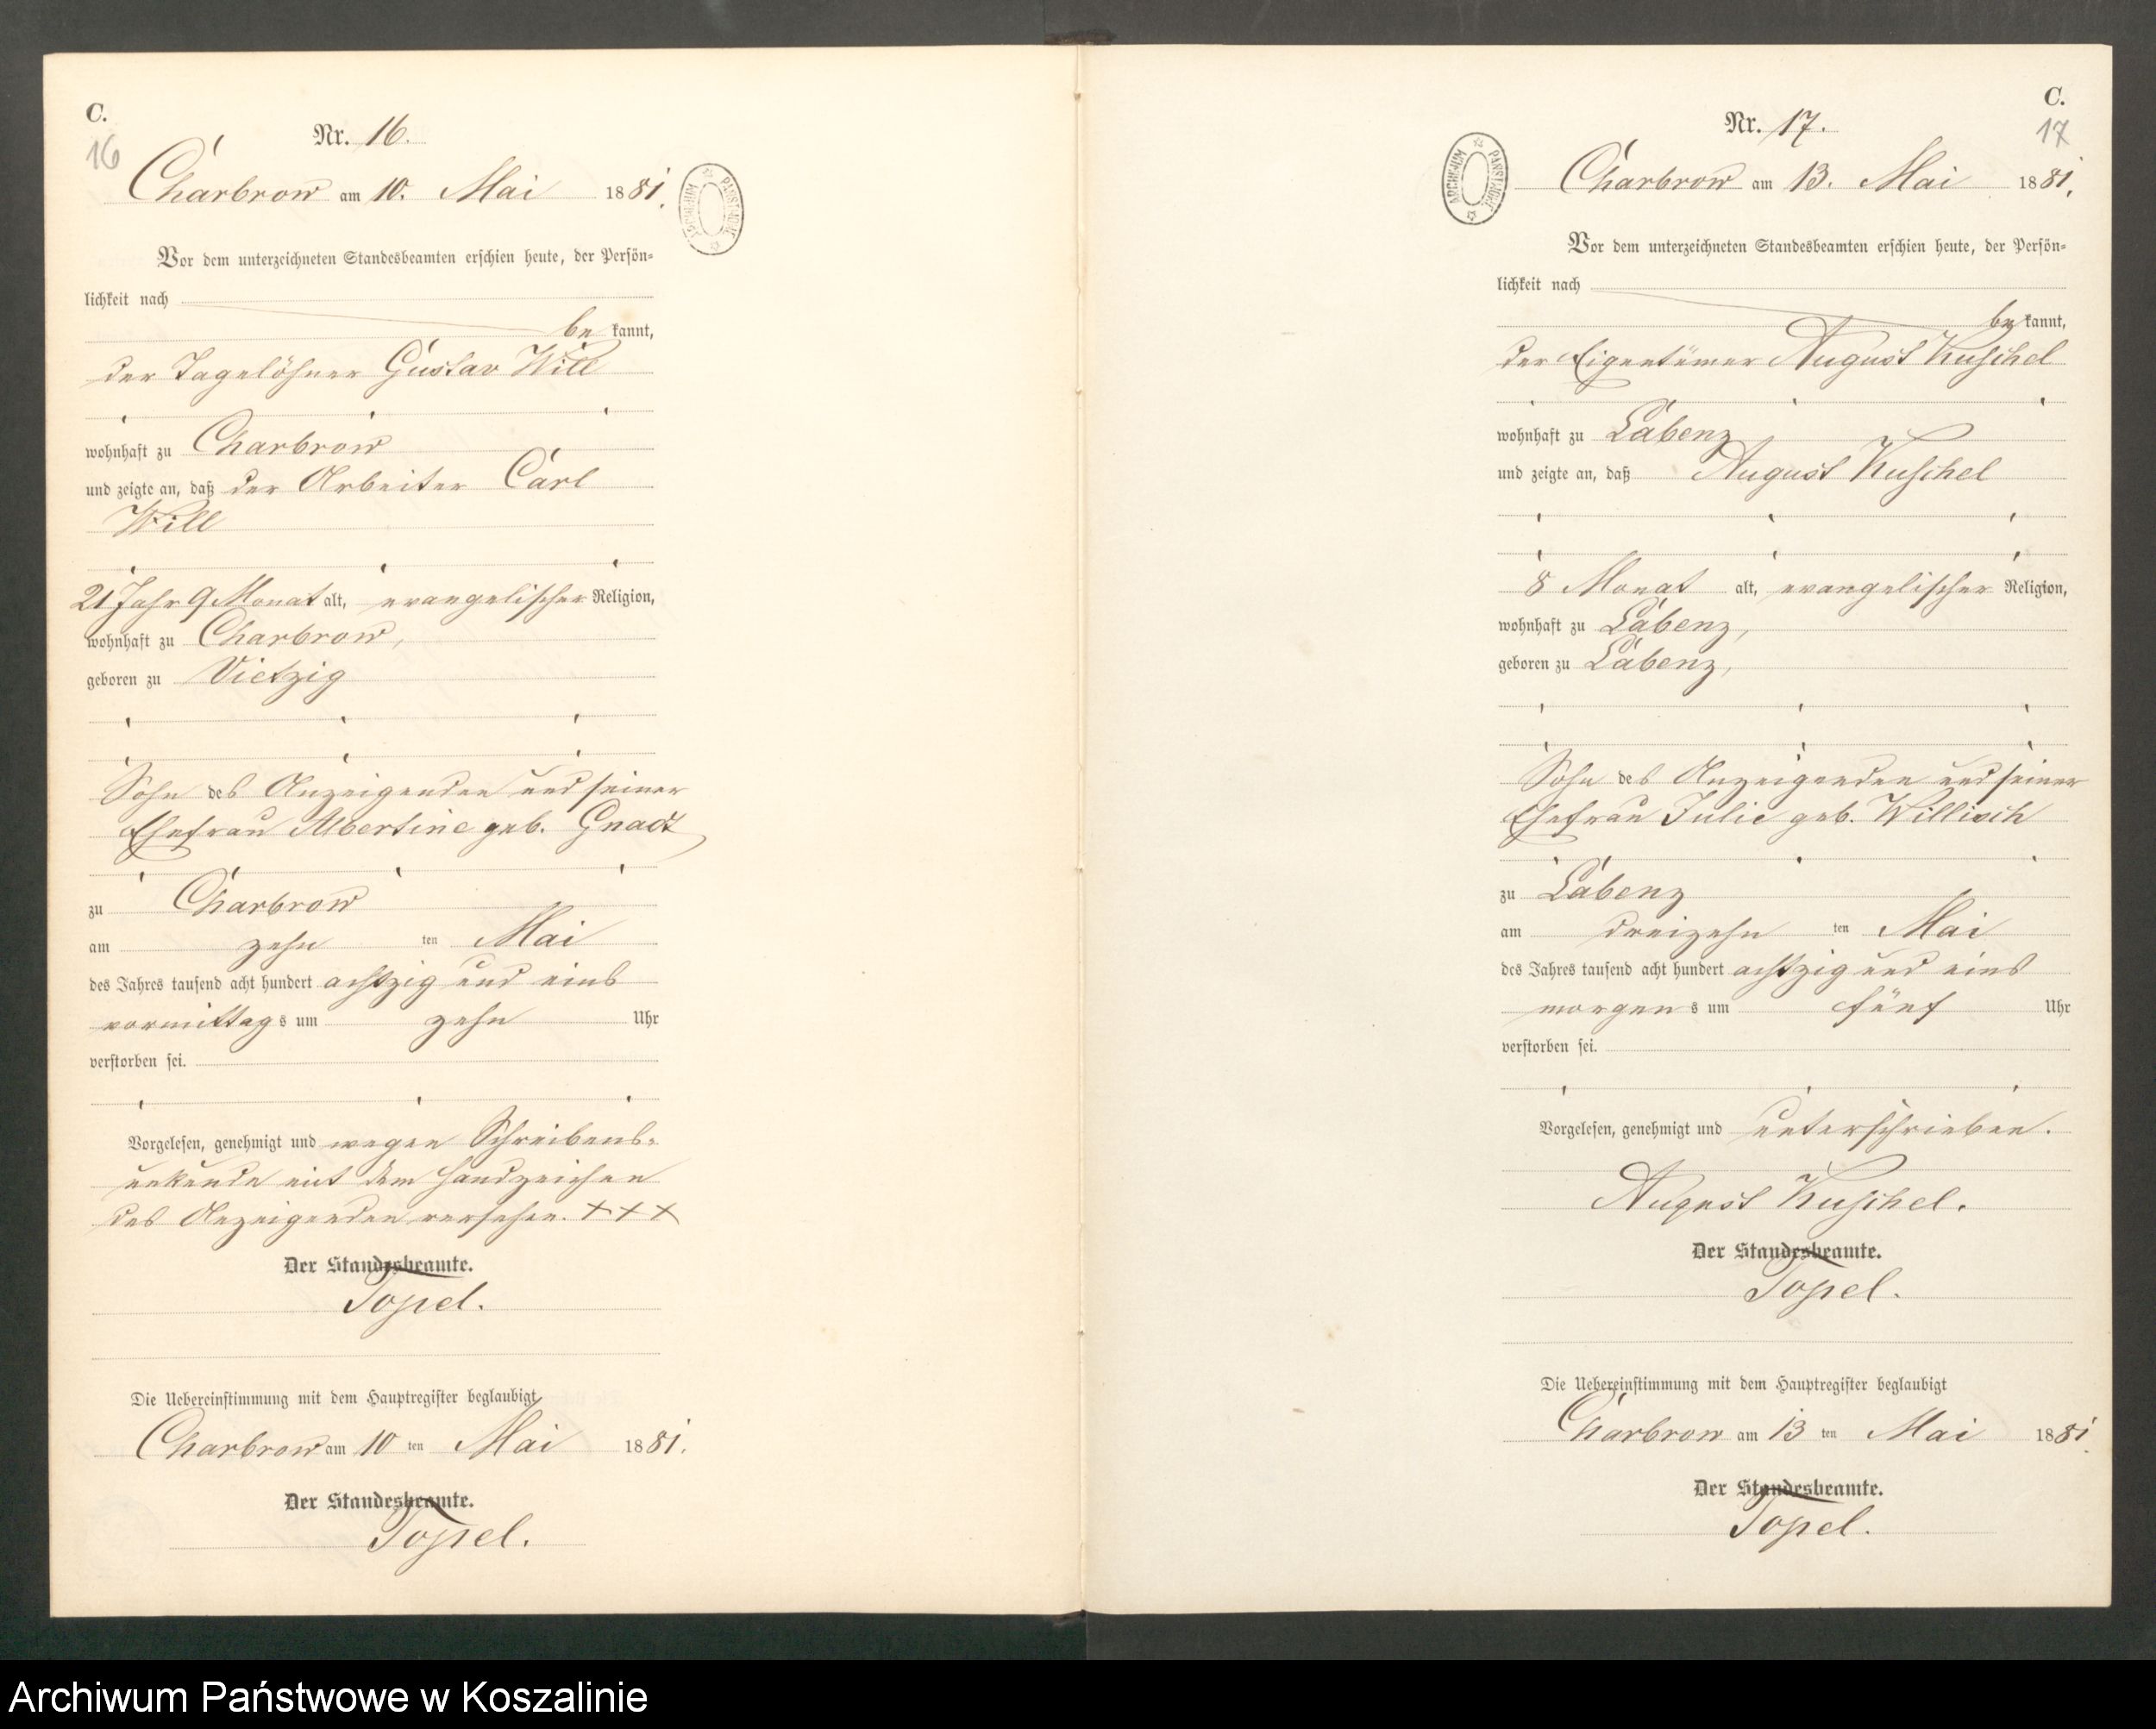 C.
16
Nr. 16.
Charbrow am 10. Mai 1881.
ARCHIWUM PAŃSTWOWE
Vor dem unterzeichneten Standesbeamten erschien heute, der Persön=
lichkeit nach
be kannt,
der Tagelöhner Gustav Will
wohnhaft zu Charbrow
und zeigte an, daß der Arbeiter Carl
Will
21 Jahr 9 Monat alt, evangelischer Religion,
wohnhaft zu Charbrow,
geboren zu Vietzig
Sohn des Anzeigenden und seiner
Ehefrau Albertine geb. Gnadt
zu Charbrow
am zehn ten Mai
des Jahres tausend acht hundert achtzig und eins
vormittags um zehn Uhr
verstorben sei.
Vorgelesen, genehmigt und wegen Schreibens=
unkunde mit dem Handzeichen
des Anzeigenden versehen. +++
Der Standesbeamte.
Topel.
Die Uebereinstimmung mit dem Hauptregister beglaubigt
Charbrow am 10 ten Mai 1881.
Der Standesbeamte.
Topel.
C.
17
Nr. 17.
Charbrow am 13. Mai 1881.
ARCHIWUM PAŃSTWOWE
Vor dem unterzeichneten Standesbeamten erschien heute, der Persön=
lichkeit nach
be kannt,
der Eigentümer August Kuschel
wohnhaft zu Labenz
und zeigte an, daß August Kuschel
8 Monat alt, evangelischer Religion,
wohnhaft zu Labenz,
geboren zu Labenz,
Sohn des Anzeigenden und seiner
Ehefrau Julie geb. Willisch
zu Labenz
am dreizehn ten Mai
des Jahres tausend acht hundert achtzig und eins
morgens um fünf Uhr
verstorben sei.
Vorgelesen, genehmigt und unterschrieben.
August Kuschel.
Der Standesbeamte.
Topel.
Die Uebereinstimmung mit dem Hauptregister beglaubigt
Charbrow am 13 ten Mai 1881.
Der Standesbeamte.
Topel.
Archiwum Państwowe w Koszalinie